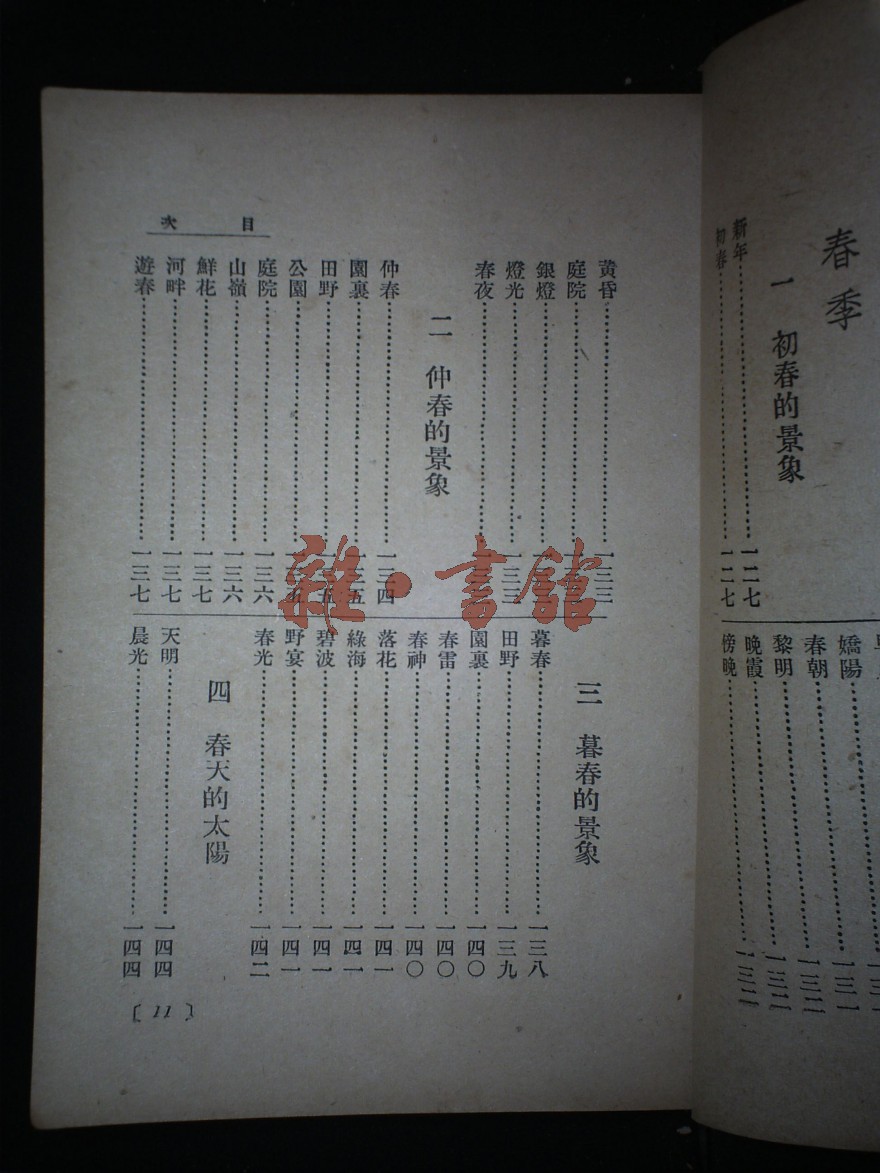 春季
一 初春的景象
新年…一二七
初春…一二七
嬌陽…一三一
春朝…一三二
黎明…一三二
晚霞…一三二
傍晚…一三二
目次
黃昏…一三三
庭院
銀燈
燈光…一三三
春夜
二 仲春的景象
仲春…一三四
園裏…一三五
田野…一三五
公園
庭院…一三六
山嶺…一三六
鮮花…一三七
河畔…一三七
遊春…一三七
三 暮春的景象
暮春…一三八
田野…一三九
園裏…一四〇
春雷…一四〇
春神…一四〇
落花…一四一
綠海…一四一
碧波…一四一
野宴…一四一
春光…一四二
四 春天的太陽
天明…一四四
晨光…一四四
〔11〕
雜·書館